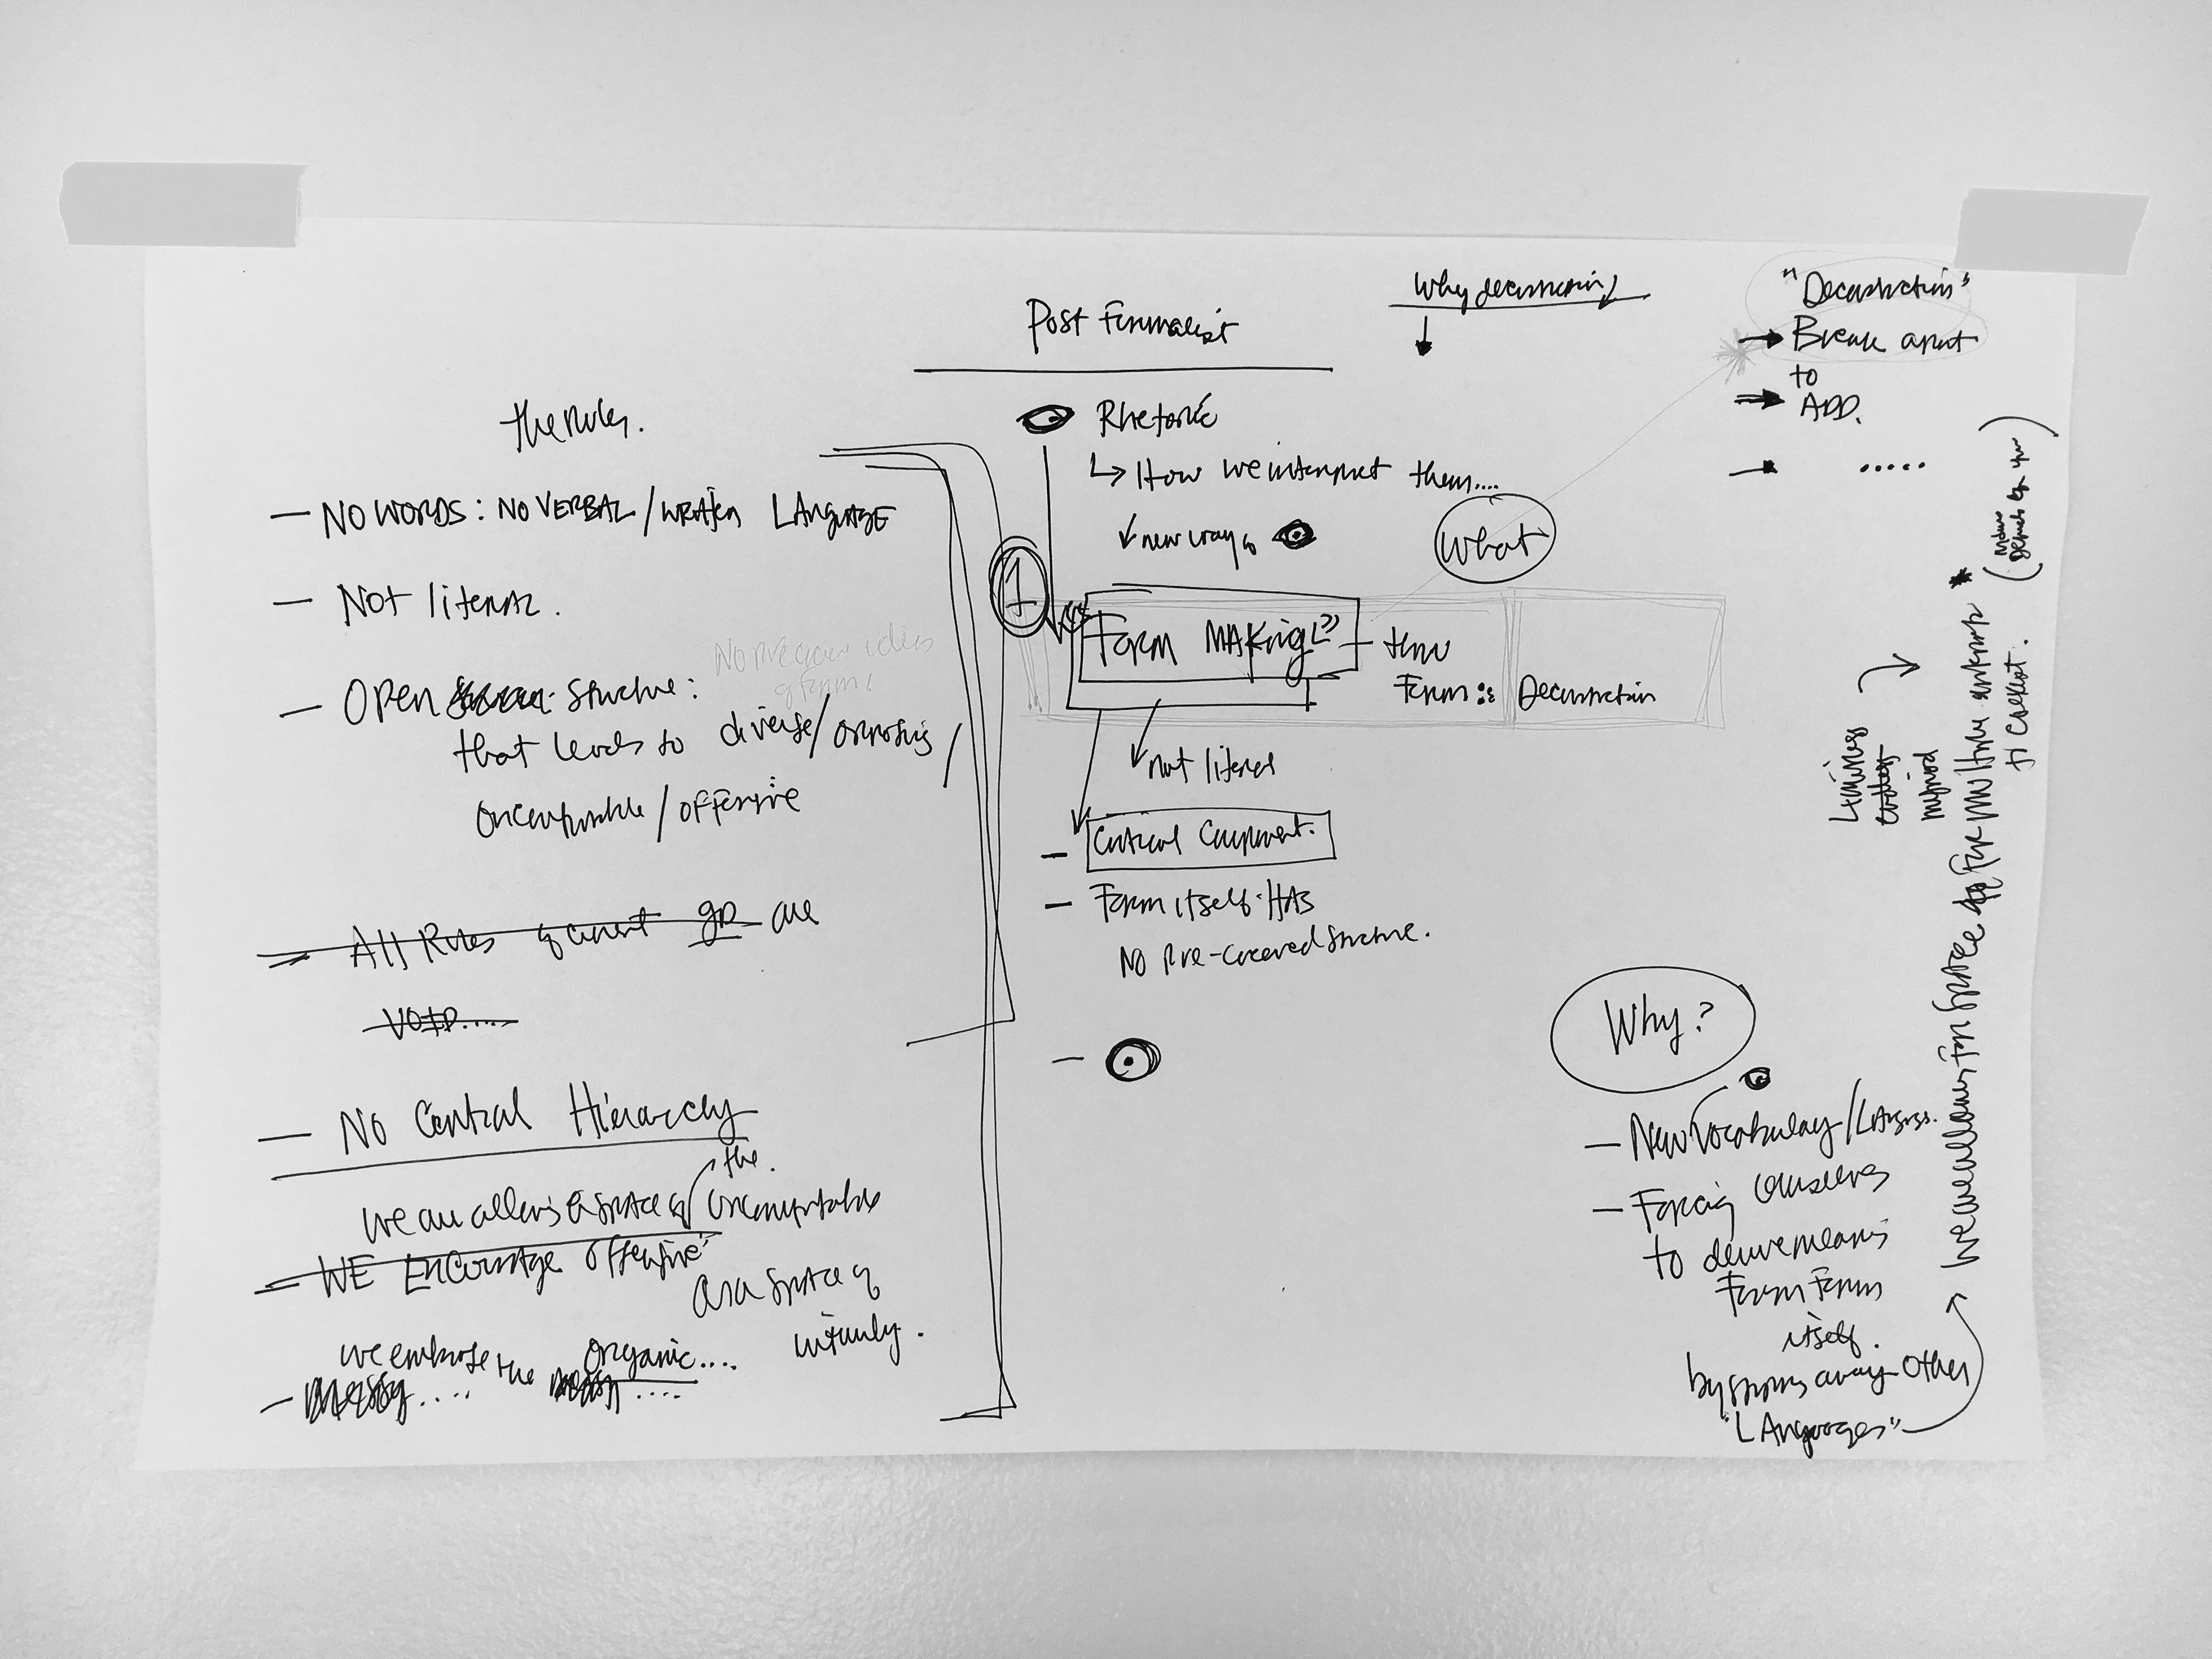 the rules.
— NO WORDS: NO VERBAL / written LANGUAGE
— Not literal.
No ideas
of form!
— OPEN structure:
that leads to diverse / opposing /
uncomfortable / offensive
— All Rules of current gd are
VOID.....
— No Central Hierarchy
the
we are allowing a space of uncomfortable
— WE ENCOURAGE offensive
as a space of
we embrace the organic....
— messy ....
Post Formalist
Rhetoric
↳ How we interpret them....
new way to
1
"FORM MAKING" — thru
Form: Deconstruction
not literal
— Critical Component.
— Form itself HAS
NO Pre-conceived structure.
—
Why deconstruction?
What
"Deconstruction"
→ Break apart
to
→ ADD.
→ .....
Why?
— New Vocabulary / Language.
— Forcing ourselves
to derive meaning
From Form
itself.
by stripping away other
"LANGUAGES"
We are allowing for space for multiple
to coexist.